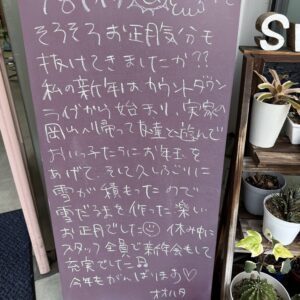 そろそろお正月気分も
抜けてきましたか??
私の新年はカウントダウン
ライブから始まり、実家の
岡山へ帰って友達と遊んで
おいっ子たちにお年玉を
あげて、そして久しぶりに
雪が積もったので
雪だるまを作った楽しい
お正月でした 休み中に
スタッフ全員で新年会もして
充実でした
今年もがんばります♡
オオハタ
S